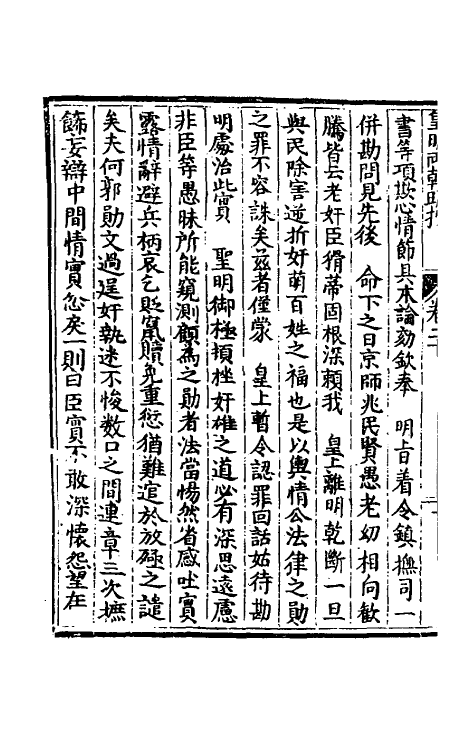 皇明兩朝疏抄 卷二十
書等項欺心情節具本論劾欽奉 明旨着令鎮撫司一
併勘問見先後 命下之日京師兆民賢愚老幼相向歡
騰皆云老奸臣猾蒂固根深賴我 皇上離明乾斷一旦
與民除害逆折奸萌百姓之福也是以輿情公法律之勛
之罪不容誅矣茲者僅蒙 皇上暫令認罪回話姑待勘
明處治此實 聖明御極損挫奸雄之道必有深思遠慮
非臣等愚昧所能窺測顧為之勛者法當惕然省感吐實
露情辭避兵柄哀乞貶竄贖免重愆猶難逭於放殛之譴
矣夫何郭勛文過逞奸執迷不悛數口之間連章三次摭
飾妄辯中間情實忿矣一則曰臣實不敢深懷怨望在